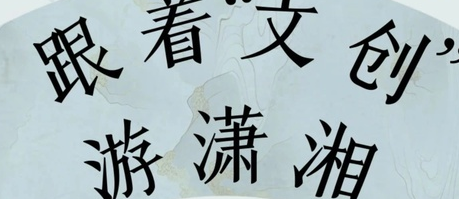 跟着“文创”
游潇湘